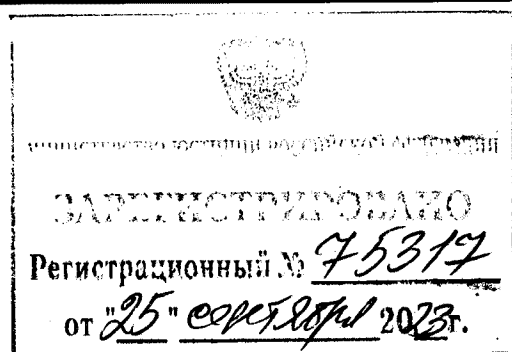 МИНИСТЕРСТВО ЮСТИЦИИ РОССИЙСКОЙ ФЕДЕРАЦИИ
ЗАРЕГИСТРИРОВАНО
Регистрационный № 75317
от "25" сентября 2023г.